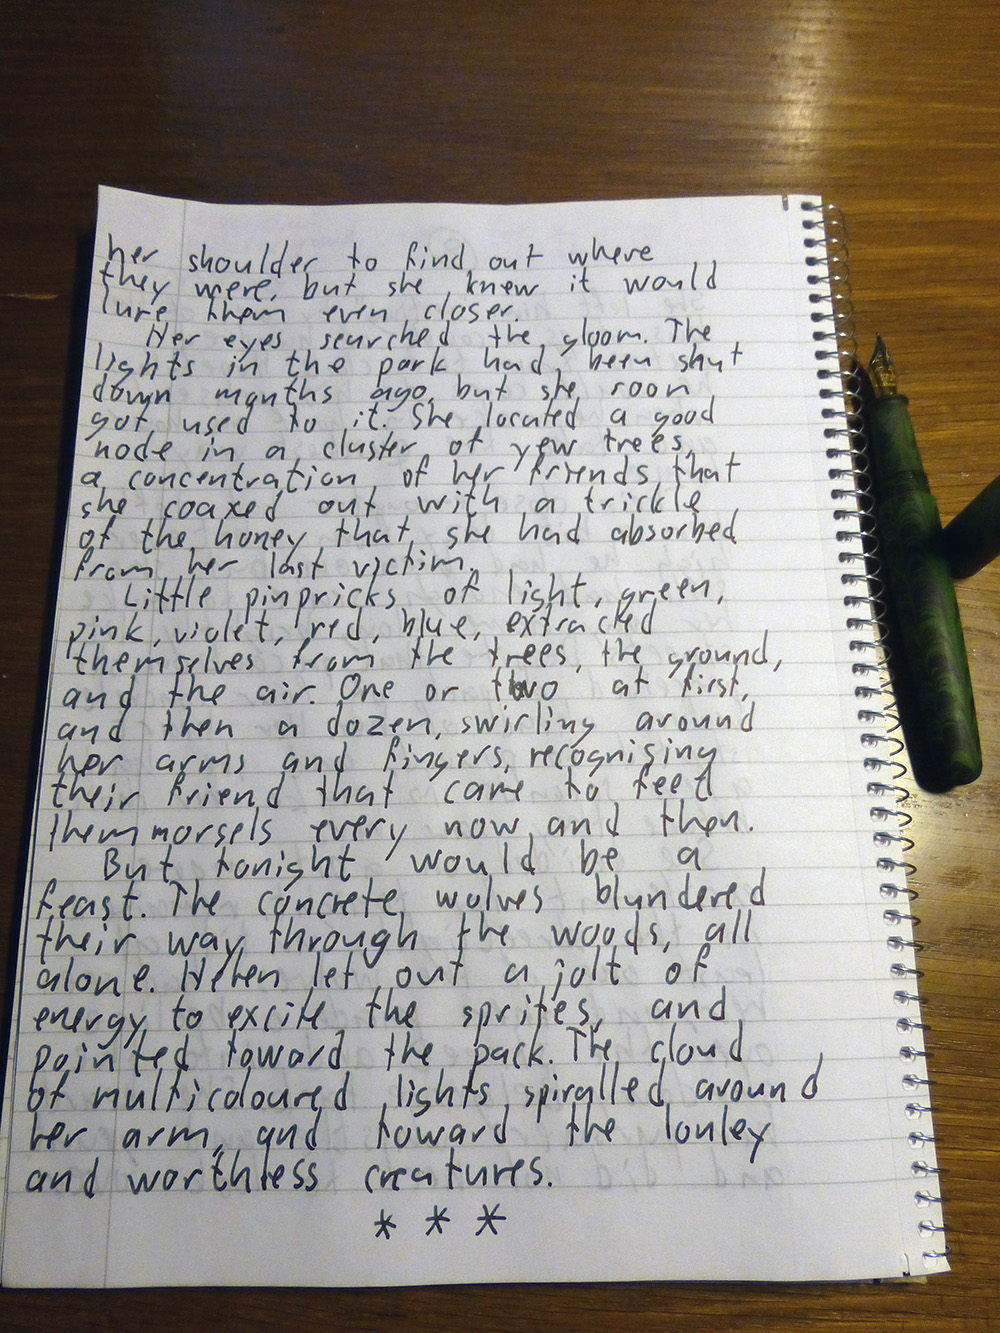 her shoulder to find out where
they were, but she knew it would
lure them even closer.
Her eyes searched the gloom. The
lights in the park had been shut
down months ago, but she soon
got used to it. She located a good
node in a cluster of yew trees,
a concentration of her friends that
she coaxed out with a trickle
of the honey that she had absorbed
from her last victim.
Little pinpricks of light, green,
pink, violet, red, blue, extracted
themselves from the trees, the ground,
and the air. One or two at first,
and then a dozen, swirling around
her arms and fingers, recognising
their friend that came to feed
them morsels every now and then.
But tonight would be a
feast. The concrete wolves blundered
their way through the woods, all
alone. Helen let out a jolt of
energy to excite the sprites, and
pointed toward the pack. The cloud
of multicoloured lights spiralled around
her arm, and toward the lonley
and worthless creatures.
* * *